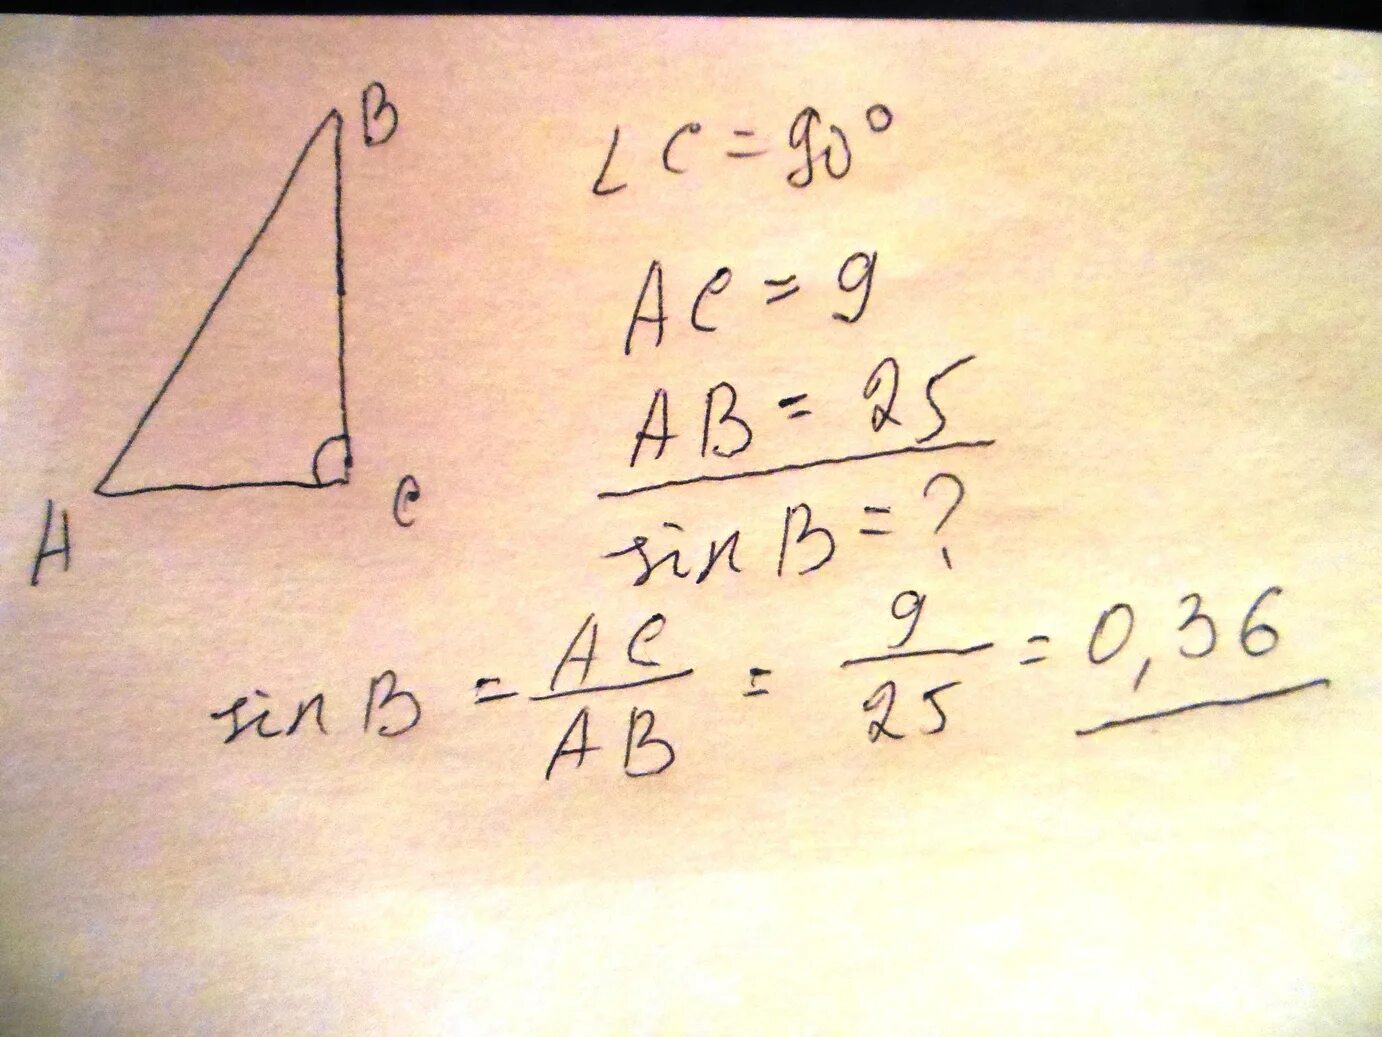 B
A
C
∠C = 90°
AC = 9
AB = 25
sin B = ?
sin B = AC/AB = 9/25 = 0,36